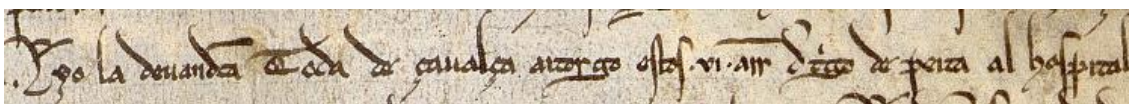 Hyo la deuandcã Toda de çaualça atorgo estos .vi. arr̃ de t̃go de peita al hospital